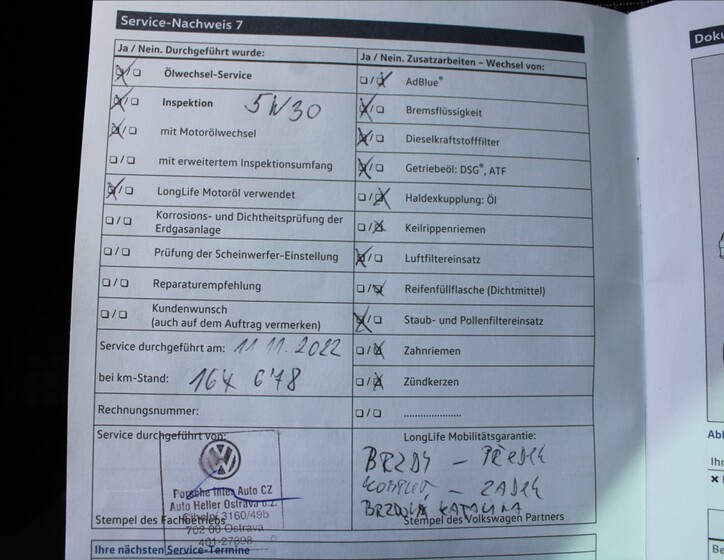 Service-Nachweis 7
Ja / Nein. Durchgeführt wurde:
Ölwechsel-Service
Inspektion 5W30
mit Motorölwechsel
mit erweitertem Inspektionsumfang
LongLife Motoröl verwendet
Korrosions- und Dichtheitsprüfung der
Erdgasanlage
Prüfung der Scheinwerfer-Einstellung
Reparaturempfehlung
Kundenwunsch
(auch auf dem Auftrag vermerken)
Service durchgeführt am: 11 11. 2022
bei km-Stand: 164 678
Rechnungsnummer:
Service durchgeführt von:
Porsche Inter Auto CZ
Auto Heller Ostrava
3160/49b
702 00 Ostrava
Stempel des Fachbetriebs
Ja / Nein. Zusatzarbeiten – Wechsel von:
AdBlue®
Bremsflüssigkeit
Dieselkraftstofffilter
Getriebeöl: DSG®, ATF
Haldexkupplung: Öl
Keilrippenriemen
Luftfiltereinsatz
Reifenfüllflasche (Dichtmittel)
Staub- und Pollenfiltereinsatz
Zahnriemen
Zündkerzen
.....................
LongLife Mobilitätsgarantie:
BRZDY –
– ZADEK
BRZDOVÁ KAPALINA
Stempel des Volkswagen Partners
Ihre nächsten Service-Termine
Doku
Abl
Ihr